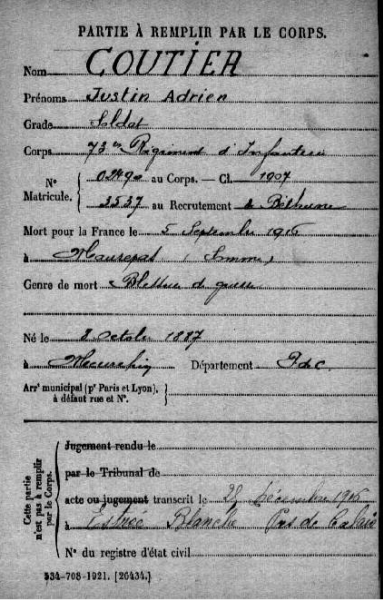 PARTIE À REMPLIR PAR LE CORPS.
Nom COUTIER
Prénoms Justin Adrien
Grade Soldat
Corps 73me Régiment d'Infanterie
N° Matricule. { au Corps. — Cl. 1907
3537 au Recrutement de Béthune
Mort pour la France le 5 Septembre 1916
à Maurepas (Somme)
Genre de mort Blessure de guerre
Né le 2 Octobre 1887
à Département P de C
Arrt municipal (pr Paris et Lyon), à défaut rue et N°.
Cette partie n'est pas à remplir par le Corps.
Jugement rendu le
par le Tribunal de
acte ou jugement transcrit le Décembre 1916
à Estrée Blanche Pas de Calais
N° du registre d'état civil
534-708-1921. [26434.]